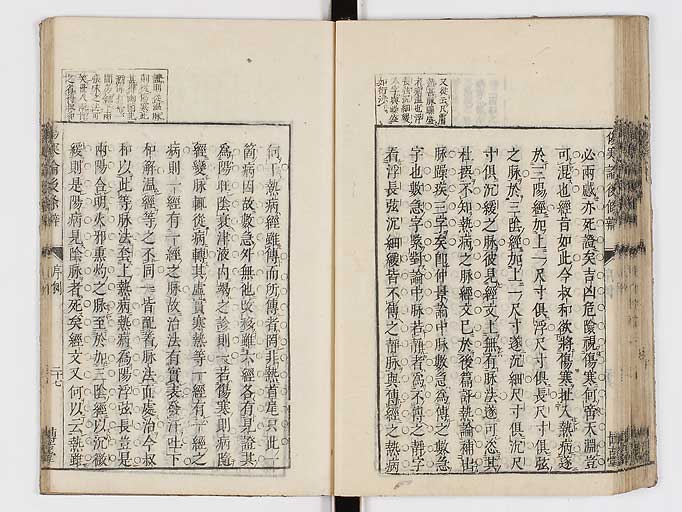 必兩感亦死證矣吉凶危險視傷寒何啻天淵豈
可混也經旨如此今叔和欲將傷寒扯入熱病遂
於三陽經加上一尺寸俱浮尺寸俱長尺寸俱弦
之脉於三陰經加上一尺寸遂沉細尺寸俱沉尺
寸俱沉緩之脉彼見經文上無有脉法遂可恣其
杜撰不知熱病之脉經文已於後篇評熱論補出
脉躁疾三字矣即仲景論中脉數急為傳之數急
字也數急字緊對論中脉若靜者為不傳之靜字
看浮長弦沉細緩皆不傳之靜脉與傳經之熱病
何干熱病經雖傳而所傳者罔非熱者是只此一
箇病因故數急外無他改移雖六經各有見證其
為陽旺陰衰津液內竭之診則一若傷寒則病隨
經變脉輒從病轉其虛實寒熱等一經有一經之
病則一經有一經之脉故治法有實表發汗吐下
和解溫經等之不同一皆配着脉法而處治今叔
和以此等脉法套上熱病熱病為陽浮弦長豈是
兩陽合明火邪熏灼之脉至於加三陰經以沉微
緩則是陽病見陰脉者死矣經文又何以云熱雖
傷寒論後條辨
序例